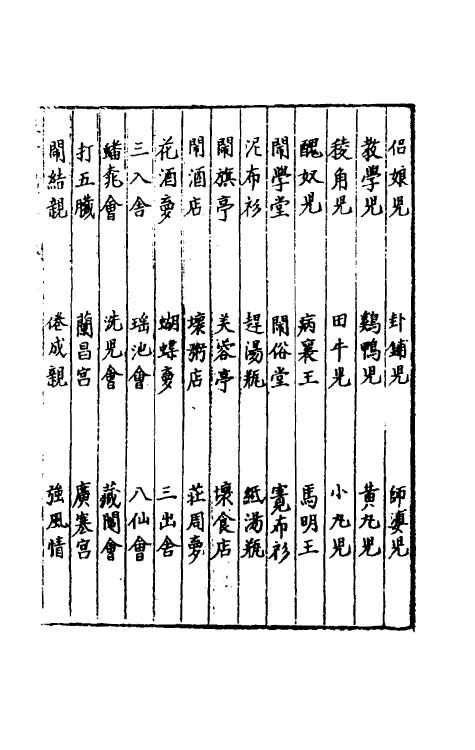 侶娘兒 卦鋪兒 師婆兒
教學兒 鷄鴨兒 黃丸兒
稜角兒 田牛兒 小丸兒
醜奴兒 病襄王 馬明王
閙學堂 閙俗堂 寬布衫
泥布衫 趕湯瓶 紙湯瓶
閙旗亭 芙蓉亭 壞食店
閙酒店 壞粥店 莊周夢
花酒夢 蝴蝶夢 三出舍
三入舍 瑤池會 八仙會
蟠桃會 洗兒會 藏鬮會
打五臟 蘭昌宮 廣寒宮
閙結親 倦成親 強風情